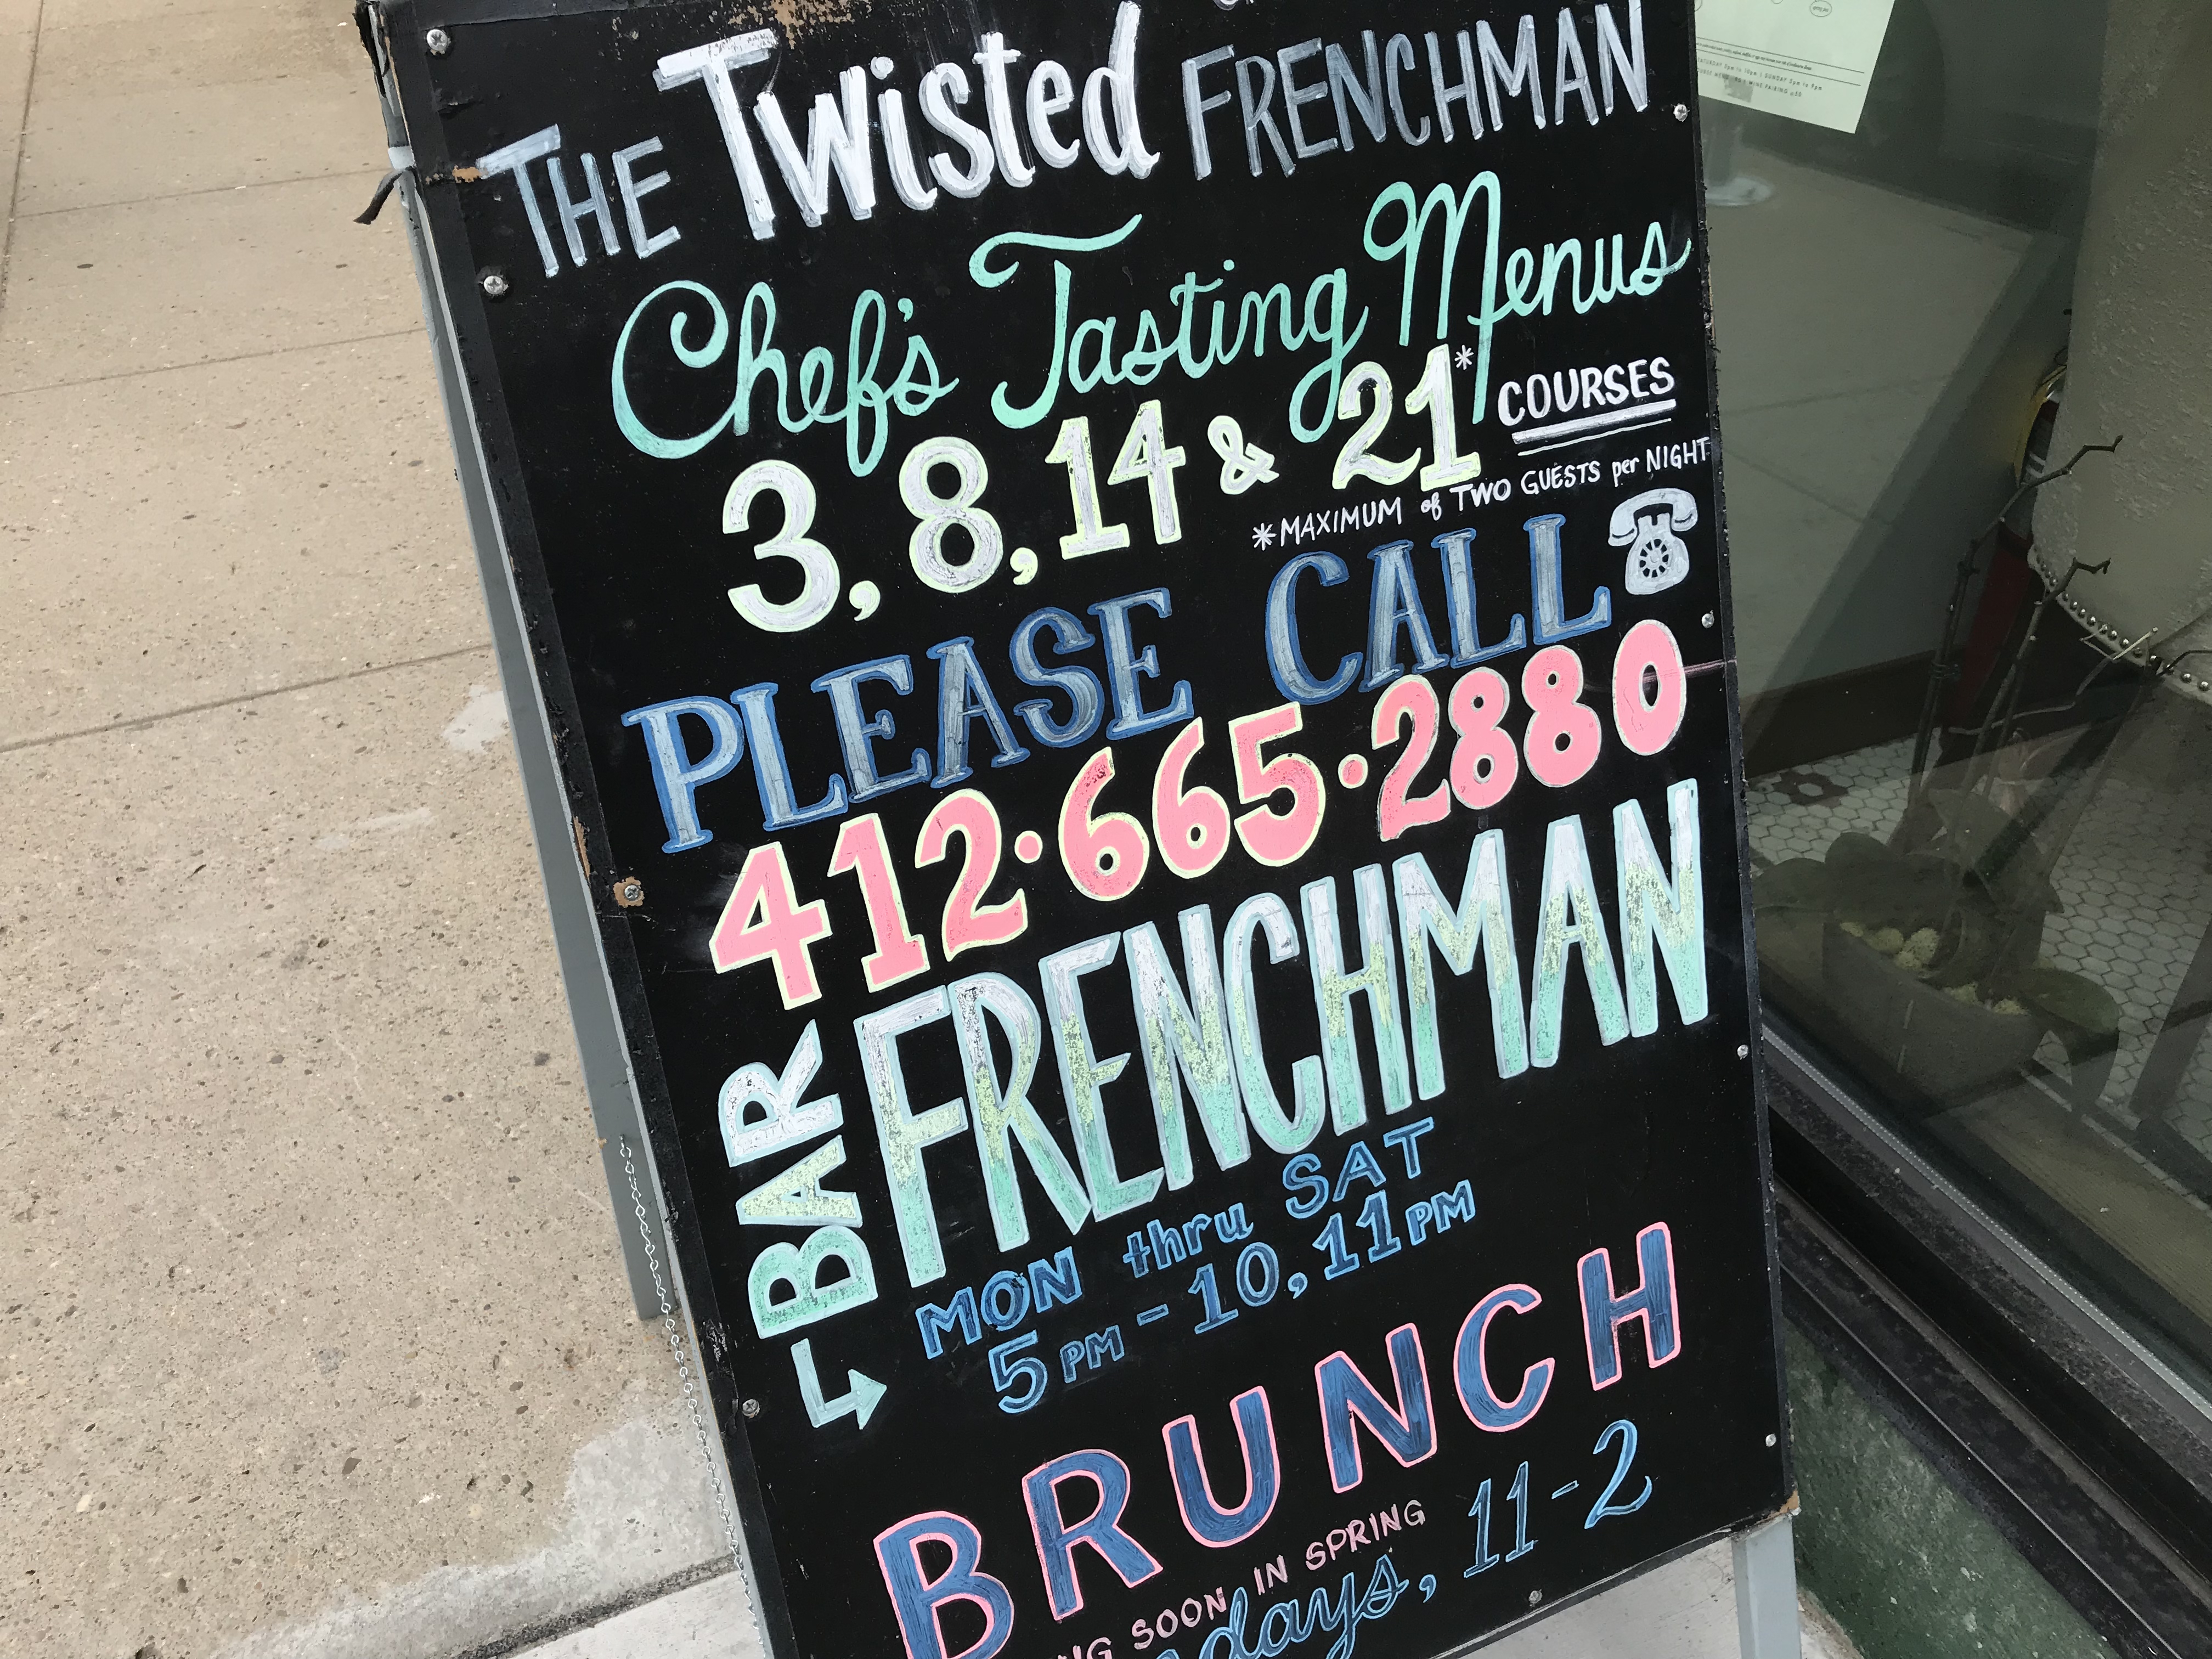 THE Twisted FRENCHMAN
Chef's Tasting Menus
3, 8, 14 & 21* COURSES
*MAXIMUM of TWO GUESTS per NIGHT
PLEASE CALL
412·665·2880
BAR FRENCHMAN
MON thru SAT
5PM - 10, 11PM
BRUNCH
SOON IN SPRING
11-2